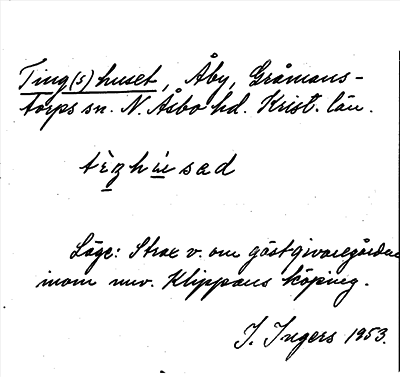 Ting(s)huset, Åby, Gråmans-
torps sn. N. Åsbo hd. Krist. län.
tèŋhùsad
Läge: Strax v. om gästgivaregården
inom nuv. Klippans köping.
I. Ingers 1953.